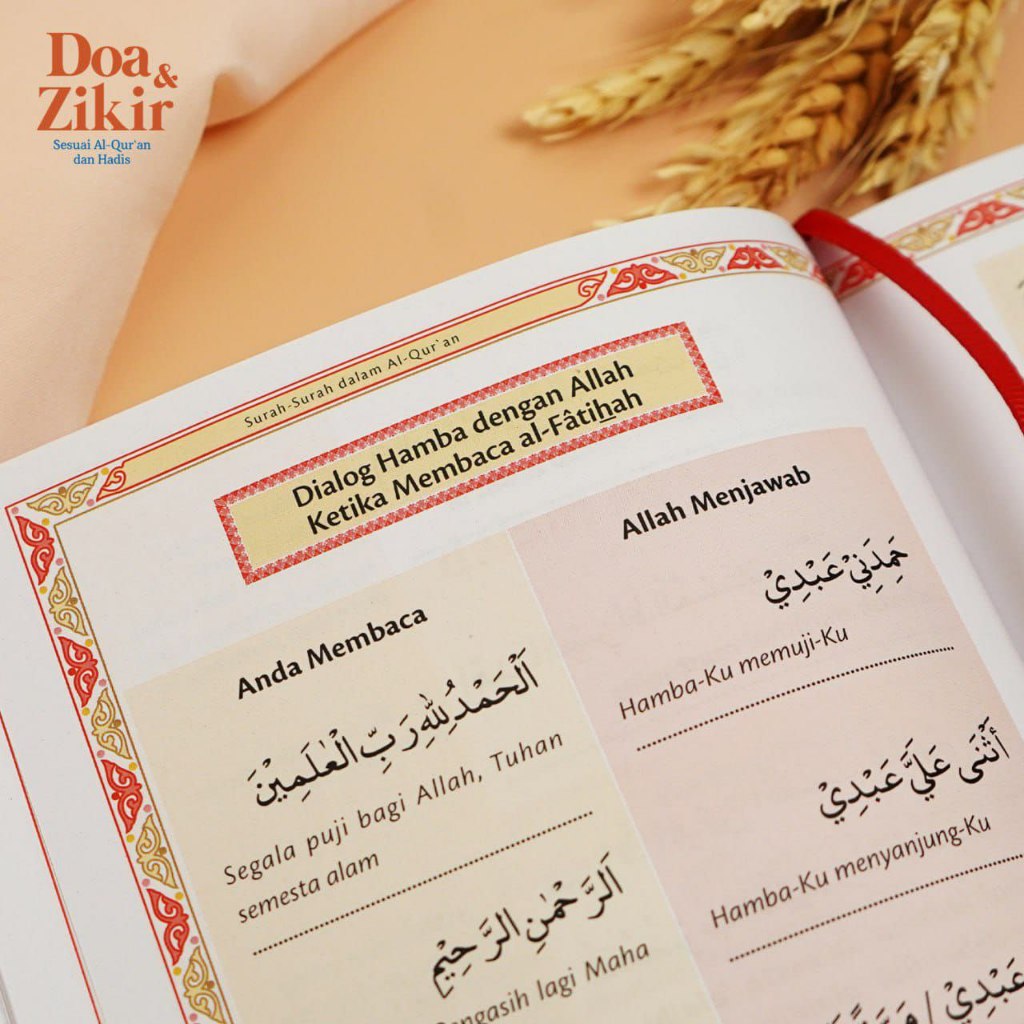 Doa &
Zikir
Sesuai Al-Qur'an
dan Hadis
Surah-Surah dalam Al-Qur`an
Dialog Hamba dengan Allah
Ketika Membaca al-Fâtihah
Anda Membaca
اَلْحَمْدُ لِلّٰهِ رَبِّ الْعٰلَمِيْنَ
Segala puji bagi Allah, Tuhan
semesta alam
اَلرَّحْمٰنِ الرَّحِيْمِ
lagi Maha
Allah Menjawab
حَمِدَنِيْ عَبْدِيْ
Hamba-Ku memuji-Ku
أَثْنَى عَلَيَّ عَبْدِيْ
Hamba-Ku menyanjung-Ku
عَبْدِيْ /